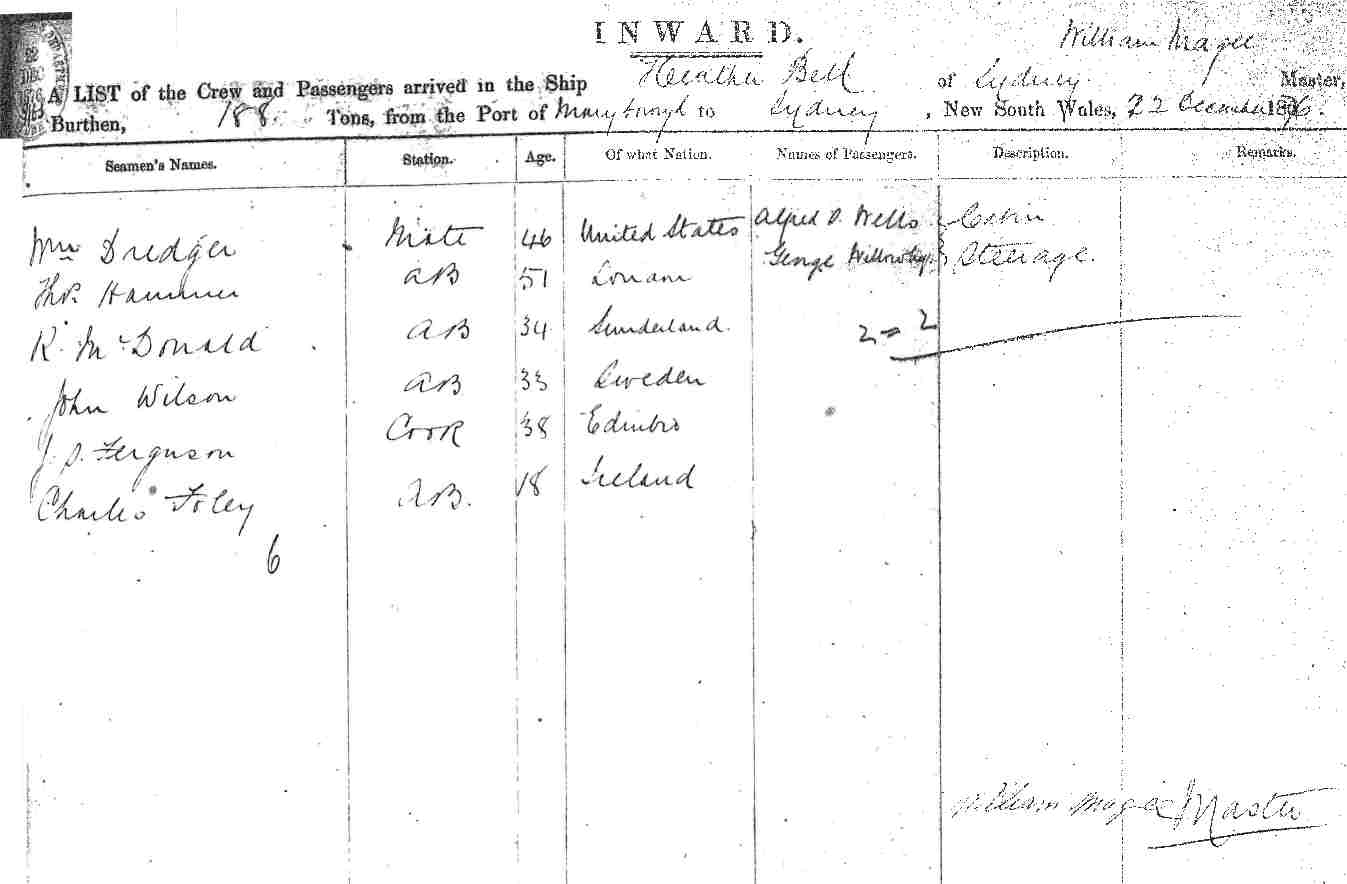 INWARD.
William Magee
A LIST of the Crew and Passengers arrived in the Ship Heather Bell of Sydney Master,
Burthen, 188 Tons, from the Port of Maryborough to Sydney, New South Wales, 22 December 1876.
Seamen's Names. Station. Age. Of what Nation. Names of Passengers. Description. Remarks.
Wm Dredger Mate 46 United States Alfred D. Wells Cabin
Thos. Hammer AB 51 George Willowby Steerage.
R. McDonald AB 34 Sunderland. 2 = 2
John Wilson AB 33 Sweden
J. S. Ferguson Cook 38 Edinbro
Charles Foley AB. 18 Ireland
6
William Magee Master